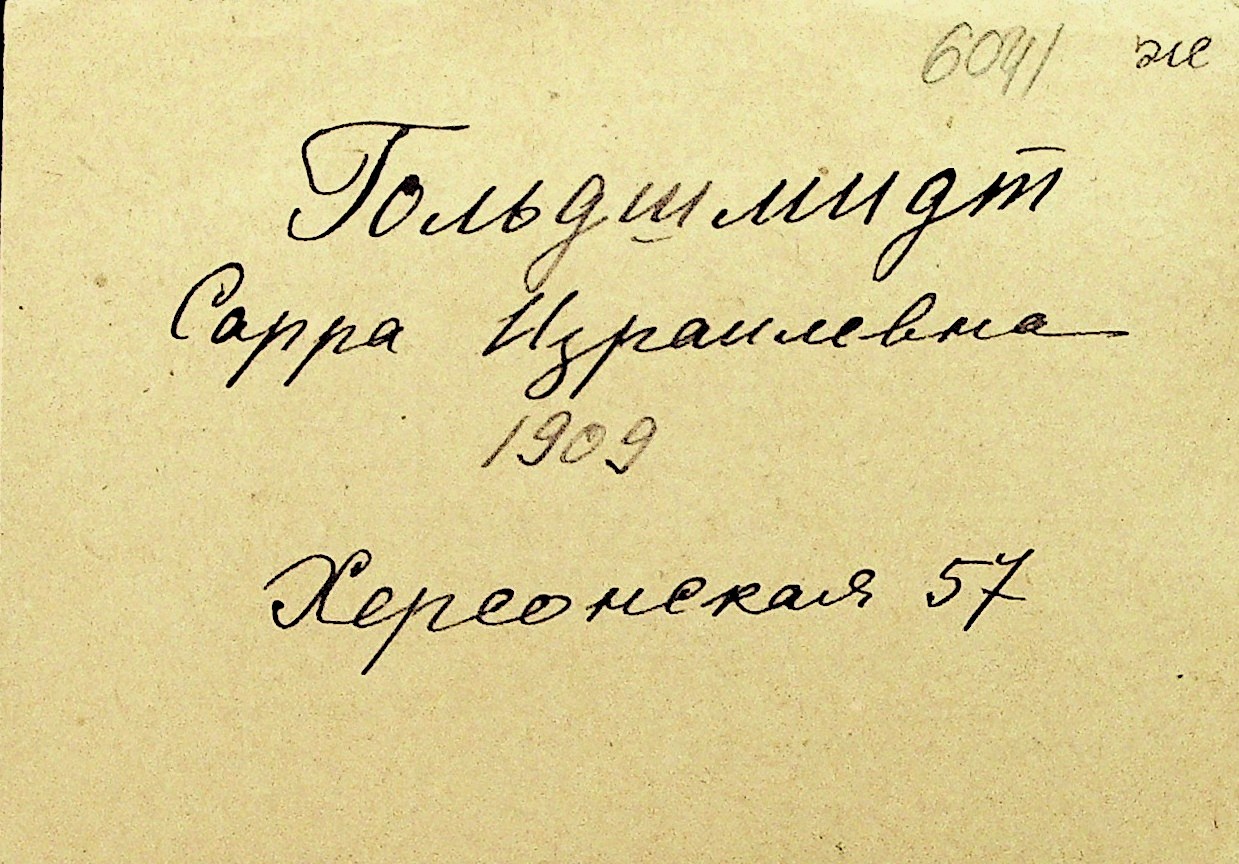 6041 ж
Гольдшмидт
Сарра Израилевна
1909
Херсонская 57